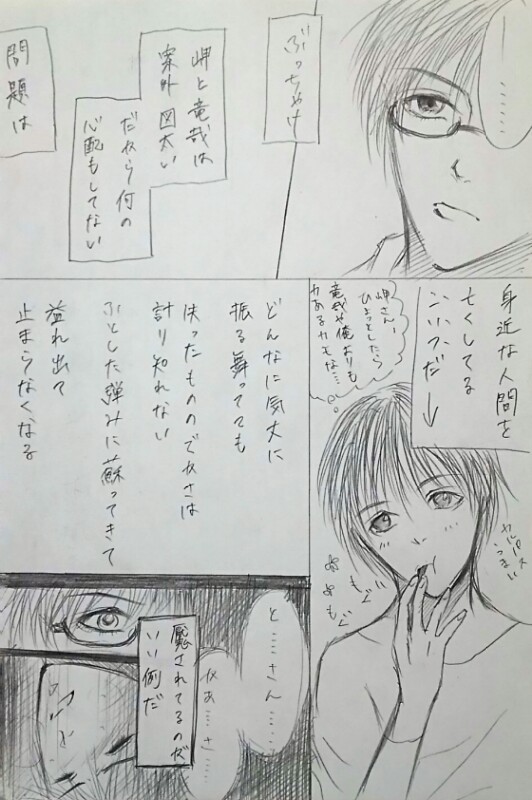 ………
ぶっちゃけ
岬と竜哉は
案外 図太い
だから何の
心配もしてない
問題は
身近な人間を
亡くしてる
コイツだ→
岬さん…
ひょっとしたら
竜哉や俺よりも
力あるカモな…
カルパス
うまい
もぐ
もぐ
どんなに気丈に
振る舞ってても
失ったものの大きさは
計り知れない
ふとした弾みに蘇ってきて
溢れ出て
止まらなくなる
と……さん……
かあ……さ……
魘されてるのが
いい例だ